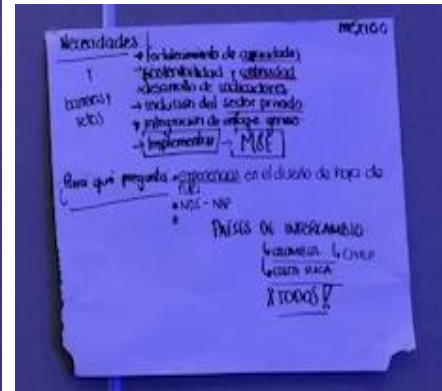 MÉXICO
Necesidades
Y
barreras y
retos
→ fortalecimiento de capacidades
→ sostenibilidad y continuidad
→ desarrollo de indicadores
→ inclusión del sector privado
→ integración de enfoque género
→ Implementar → M&E
Para qué pregunta • experiencias en el diseño de hoja de
• NDC - NAP
•
PAÍSES DE INTERCAMBIO
↳ COLOMBIA ↳ CHILE
↳ COSTA RICA
X TODOS!